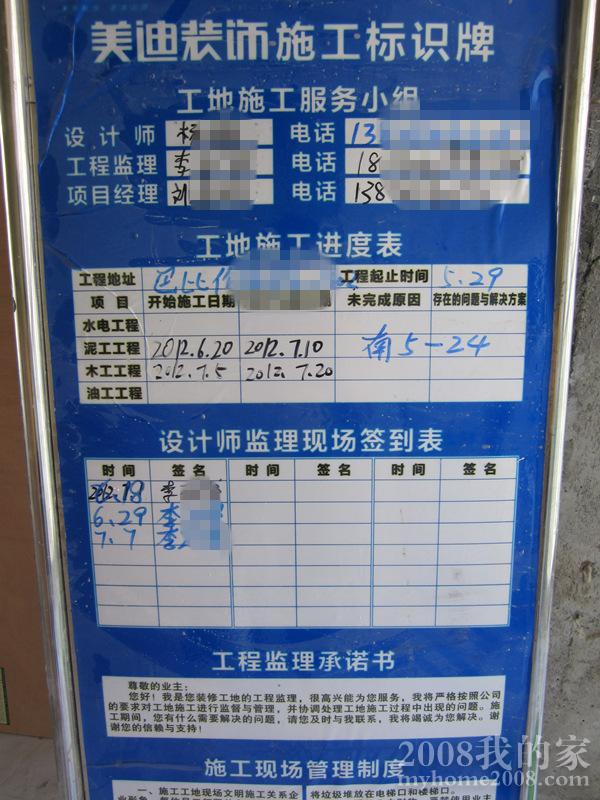 美迪装饰施工标识牌
工地施工服务小组
设计师 电话 13
工程监理 李 电话 18
项目经理 刘 电话 138
工地施工进度表
工程地址 巴比伦 工程起止时间 5.29
项目 开始施工日期 期 未完成原因 存在的问题与解决方案
水电工程
泥工工程 2012.6.20 2012.7.10 南5-24
木工工程 2012.7.5 2012.7.20
油工工程
设计师监理现场签到表
时间 签名 时间 签名 时间 签名
李
6.29 李
7.7 李
工程监理承诺书
尊敬的业主：
您好！我是您装修工地的工程监理，很高兴能为您服务，我将严格按照公司
的要求对工地施工进行监督与管理，并协调处理工地施工过程中出现的问题。施
工期间，您有什么需要解决的问题，请您及时与我联系，我将竭诚为您解决。谢
谢您的信赖与支持！
施工现场管理制度
一、施工工地现场文明施工关系企
将垃圾堆放在电梯口和楼梯口。
2008我的家
myhome2008.com